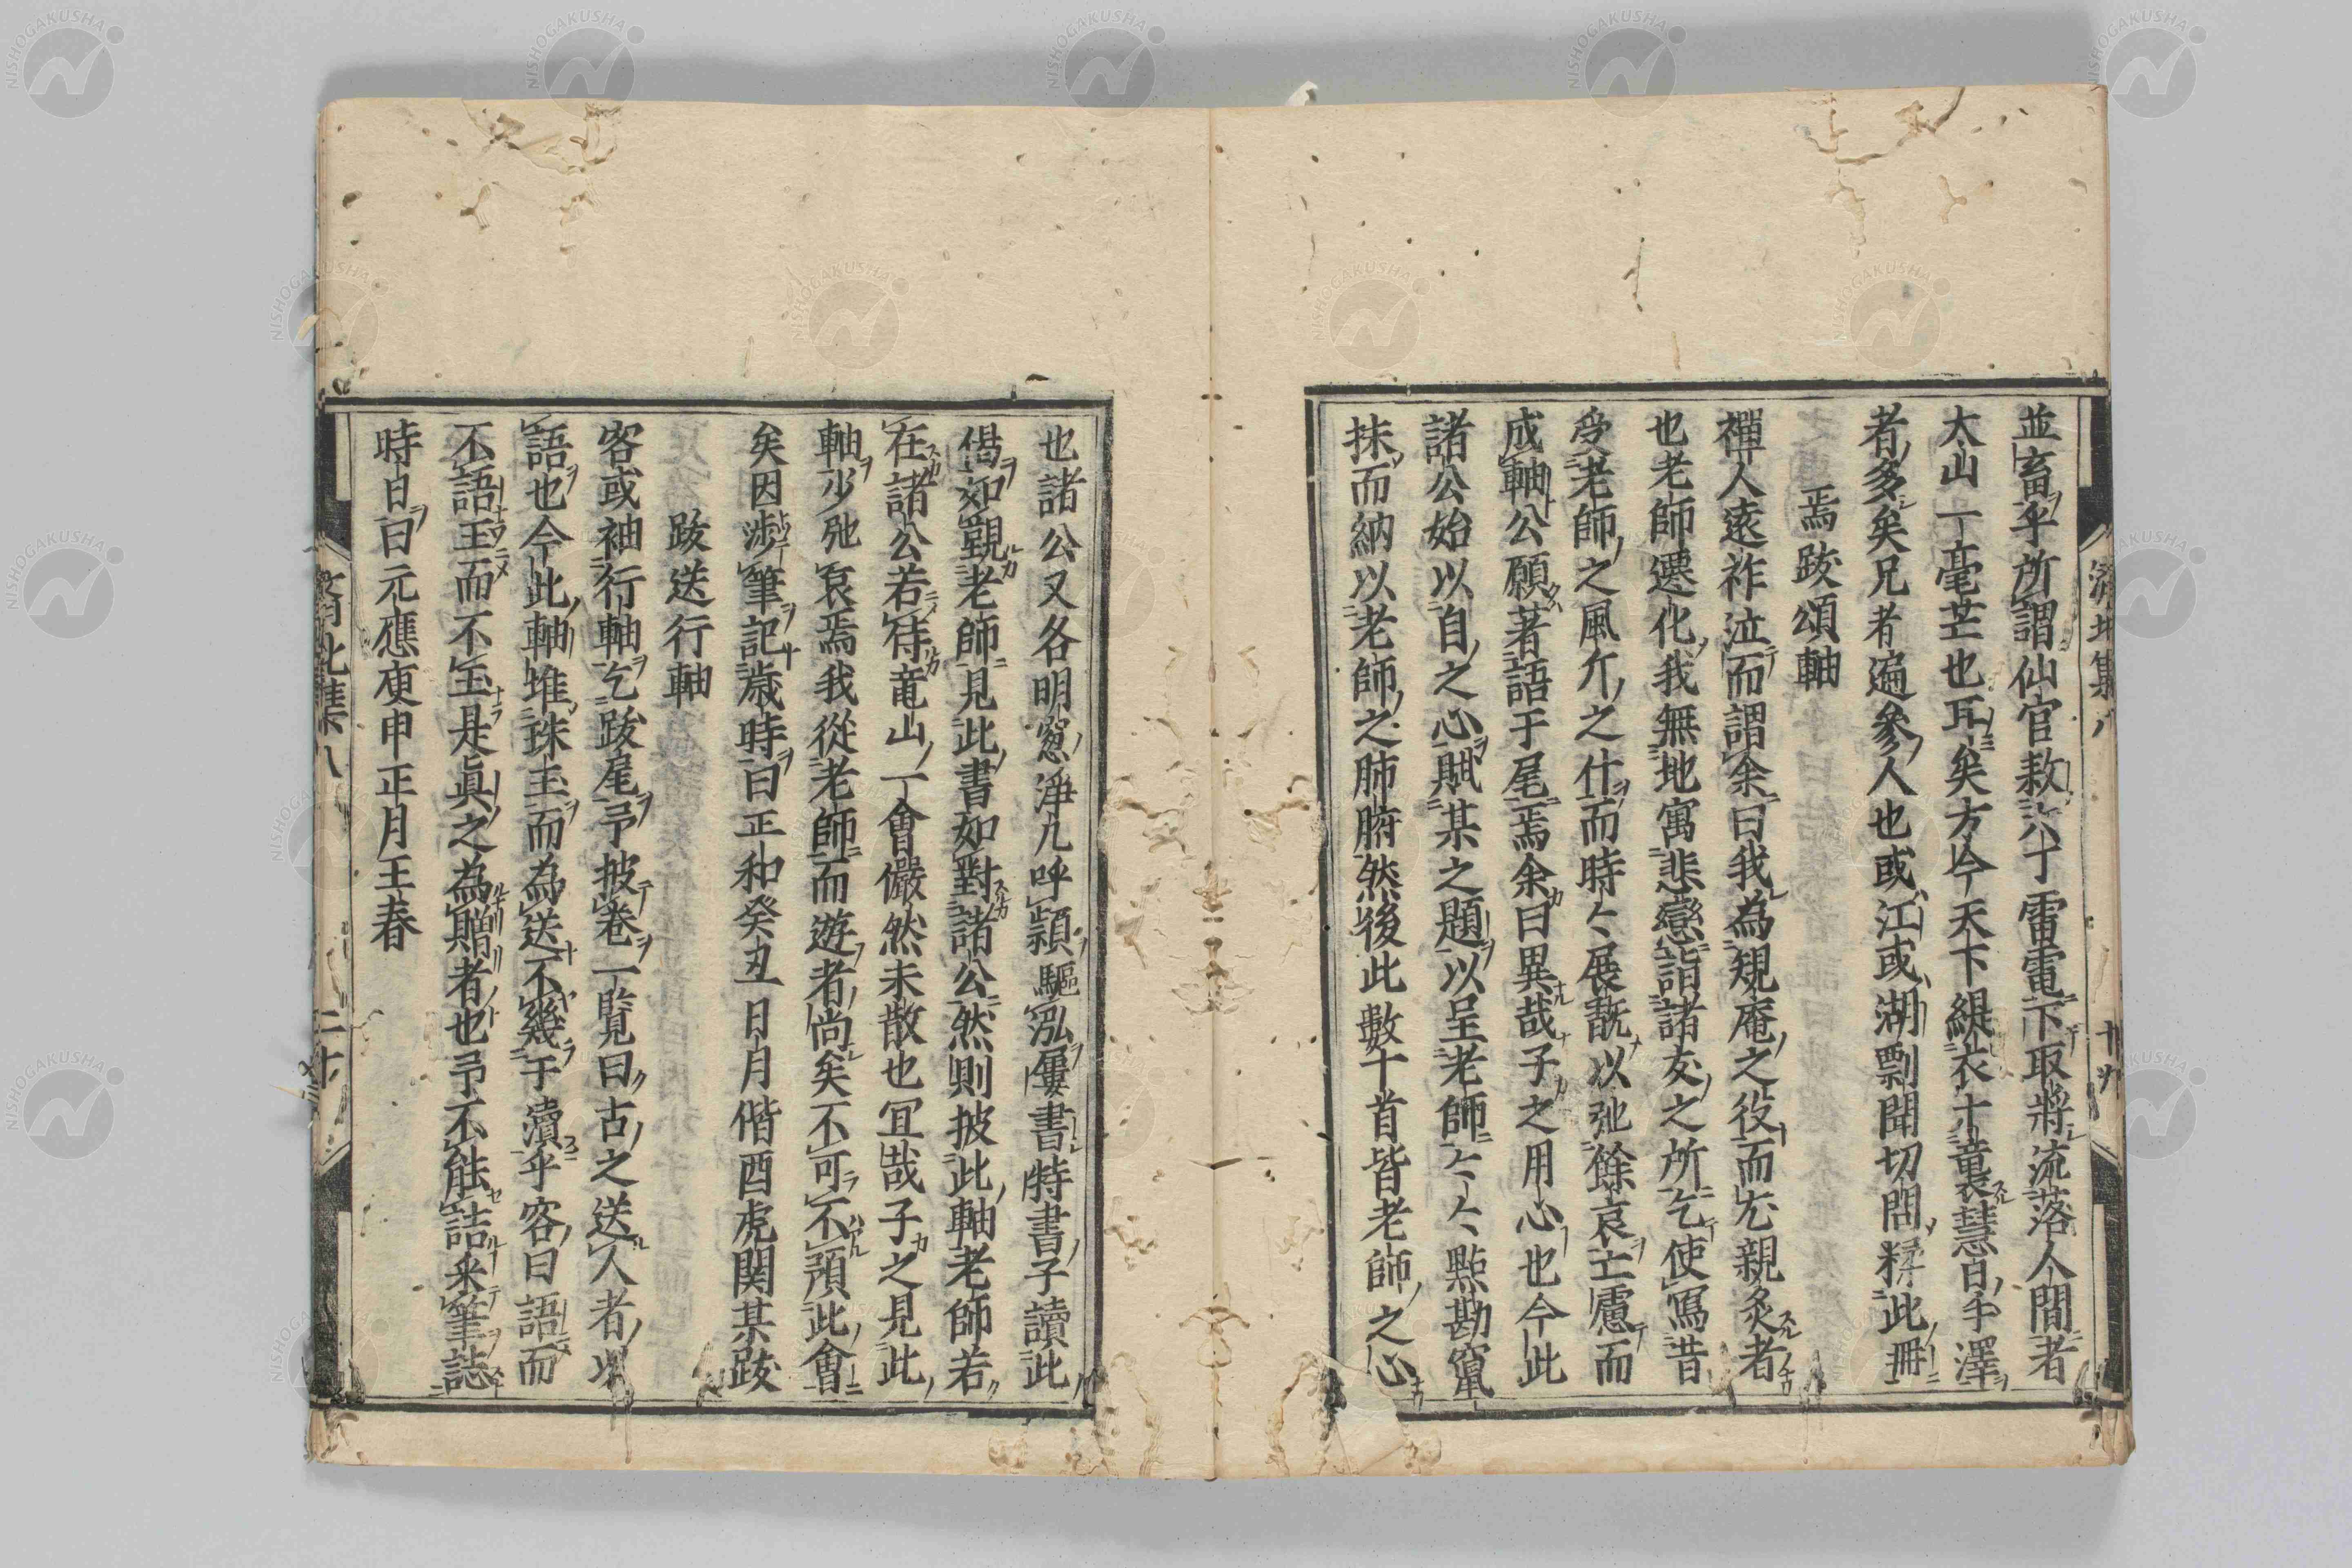 並畜乎所謂仙官敕六丁雷電下取將流落人間者
太山一亳芒也耳矣方今天下緹衣十裏慧日手澤
者多矣兄者遍參人也或江或湖剽聞切問糅此冊
焉跋頌軸
禪人遠祚泣而謂余曰我為規庵之役而尤親炙者
也老師遷化我無地寓悲戀詣諸友之所乞使寫昔
受老師之風介之什而時々展翫以弛餘哀亡慮而
成軸公願著語于尾焉余曰異哉子之用心也今此
諸公始以自之心賦某之題以呈老師々々點勘竄
抹而納以老師之肺腑然後此數十首皆老師之心
也諸公又各明窓淨几呼頴驅泓屢書特書子讀此
偈如觀老師見此書如對諸公然則披此軸老師若
在諸公若侍竜山一會儼然未散也宜哉子之見此
軸少弛哀焉我從老師而遊者尚矣不可不預此會
矣因渉筆記歳時曰正和癸丑日月偕酉虎関某跋
跋送行軸
客或袖行軸乞跋尾予披卷一覧曰古之送人者以
語也今此軸堆珠玉而為送不幾于瀆乎客曰語而
不語玉而不玉是眞之為贈者也予不能詰采筆誌
時日曰元應庚申正月王春
濟北集八
十九
濟北集八
二十